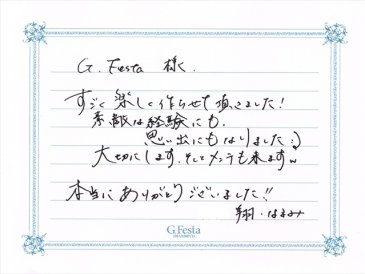 G. Festa 様く
すごく楽しく作らせて頂きました！
素敵な経験にも、
思い出にもなりました:)
大切にします。そしてメンテも来ますね
本当にありがとうございました!!
翔・はるみ
G.Festa